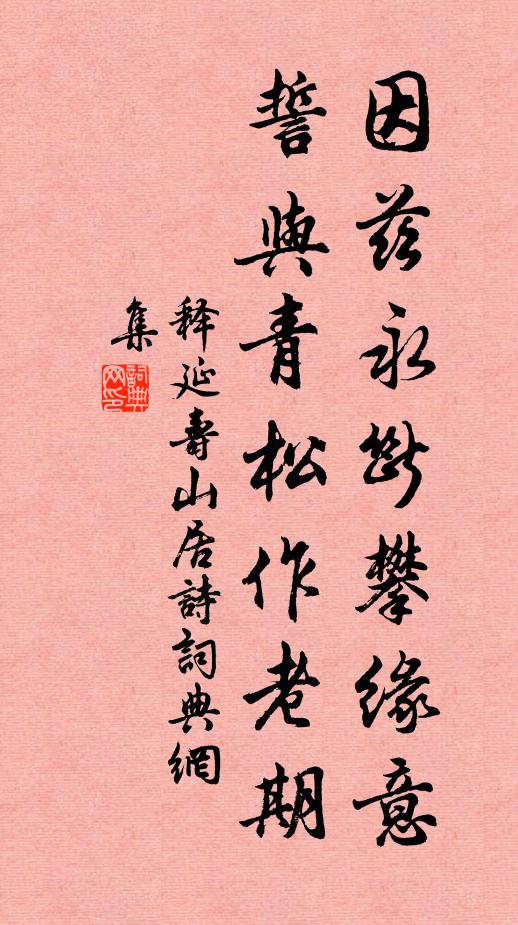 因茲永斷攀緣意
誓與青松作老期
释延壽山居詩詞典網
集
詞典網印